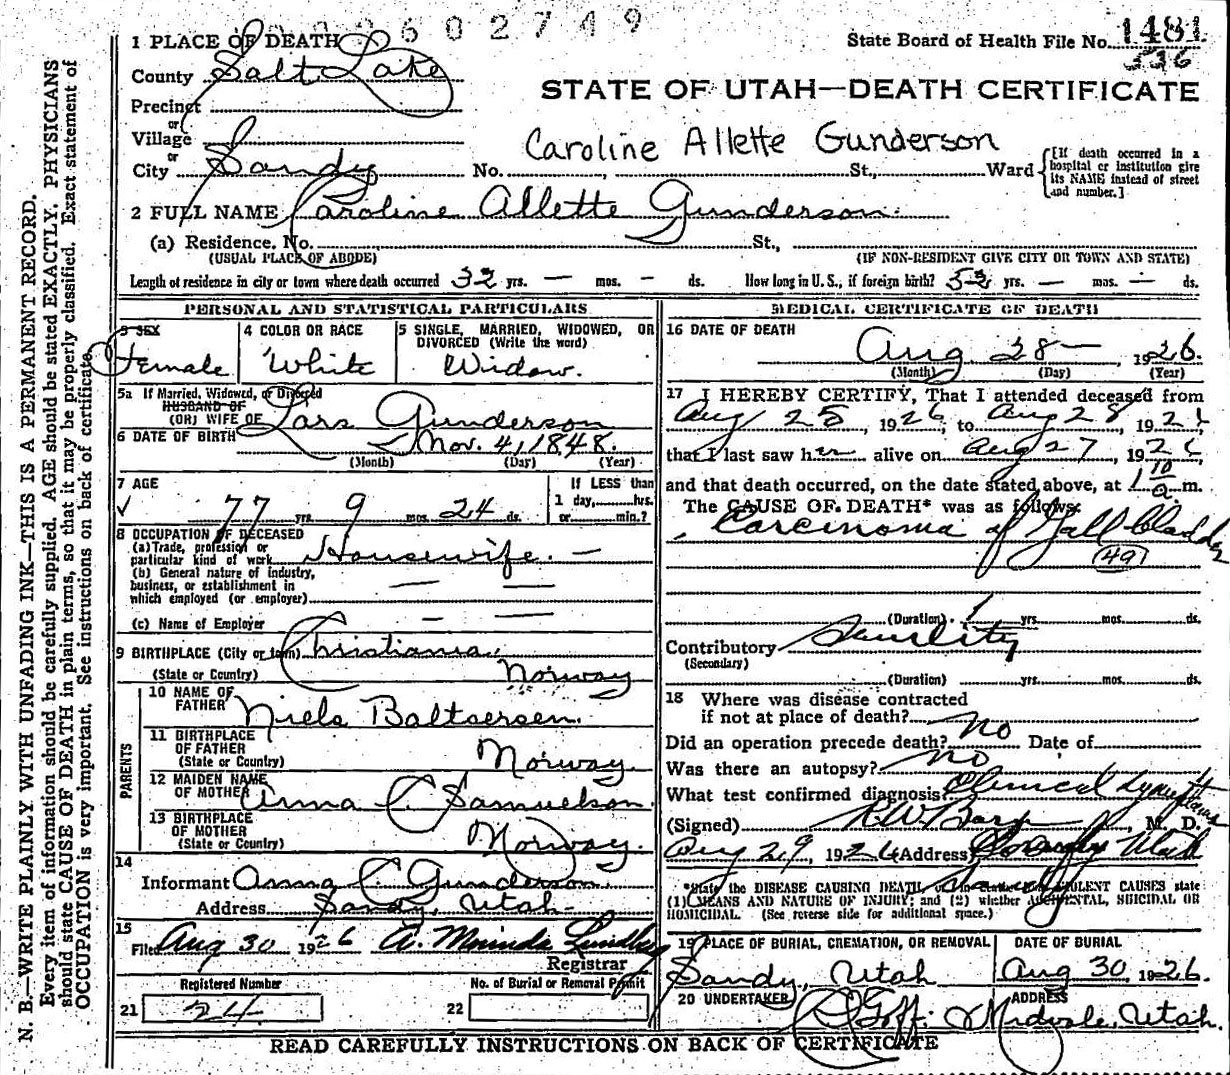 2602749
1 PLACE OF DEATH
State Board of Health File No. 1481
536
County Salt Lake
STATE OF UTAH—DEATH CERTIFICATE
Precinct
or
Village
Caroline Allette Gunderson
or
City Sandy No. , St., Ward
[If death occurred in a hospital or institution give its NAME instead of street and number.]
2 FULL NAME Caroline Allette Gunderson.
(a) Residence. No. St.,
(USUAL PLACE OF ABODE) (IF NON-RESIDENT GIVE CITY OR TOWN AND STATE)
Length of residence in city or town where death occurred 32 yrs. — mos. — ds. How long in U. S., if foreign birth? 52 yrs. — mos. — ds.
PERSONAL AND STATISTICAL PARTICULARS
3 SEX
Female
4 COLOR OR RACE
White
5 SINGLE, MARRIED, WIDOWED, OR DIVORCED (Write the word)
Widow.
5a If Married, Widowed, or Divorced
HUSBAND OF
(OR) WIFE OF Lars Gunderson
6 DATE OF BIRTH Nov. 4, 1848.
(Month) (Day) (Year)
7 AGE
77 yrs. 9 mos. 24 ds.
If LESS than
1 day, hrs.
or min.?
8 OCCUPATION OF DECEASED
(a) Trade, profession or
particular kind of work Housewife. —
(b) General nature of industry,
business, or establishment in
which employed (or employer) — —
(c) Name of Employer — —
9 BIRTHPLACE (City or town) Christiania,
(State or Country) Norway
PARENTS
10 NAME OF
FATHER Niels Baltsersen.
11 BIRTHPLACE
OF FATHER
(State or Country) Norway.
12 MAIDEN NAME
OF MOTHER Anna C. Samuelson.
13 BIRTHPLACE
OF MOTHER
(State or Country) Norway.
14
Informant Anna C. Gunderson.
Address Sandy, Utah-
15
Filed Aug 30 1926 A.
Registrar
Registered Number
21 24
No. of Burial or Removal Permit
22
MEDICAL CERTIFICATE OF DEATH
16 DATE OF DEATH
Aug 28— 1926.
(Month) (Day) (Year)
17 I HEREBY CERTIFY, That I attended deceased from
Aug 25, 1926, to Aug 28, 192
that I last saw her alive on Aug 27, 192
and that death occurred, on the date stated above, at 1 10 a. m.
The CAUSE OF DEATH* was as follows:
Carcinoma of Gall bladder
49
(Duration) 1 yrs. mos. ds.
Contributory Senility
(Secondary)
(Duration) yrs. mos. ds.
18 Where was disease contracted
if not at place of death?
Did an operation precede death? No Date of
Was there an autopsy? No
What test confirmed diagnosis? Clinical
(Signed) , M. D.
Aug 29, 1926 Address Sandy Utah
*State the DISEASE CAUSING DEATH, or in deaths from VIOLENT CAUSES state
(1) MEANS AND NATURE OF INJURY; and (2) whether ACCIDENTAL, SUICIDAL OR
HOMICIDAL. (See reverse side for additional space.)
19 PLACE OF BURIAL, CREMATION, OR REMOVAL
Sandy, Utah
DATE OF BURIAL
Aug 30 1926.
20 UNDERTAKER
Goff.
ADDRESS
Midvale, Utah.
READ CAREFULLY INSTRUCTIONS ON BACK OF CERTIFICATE
N. B.—WRITE PLAINLY WITH UNFADING INK—THIS IS A PERMANENT RECORD.
Every item of information should be carefully supplied. AGE should be stated EXACTLY. PHYSICIANS
should state CAUSE OF DEATH in plain terms, so that it may be properly classified. Exact statement of
OCCUPATION is very important. See instructions on back of certificate.